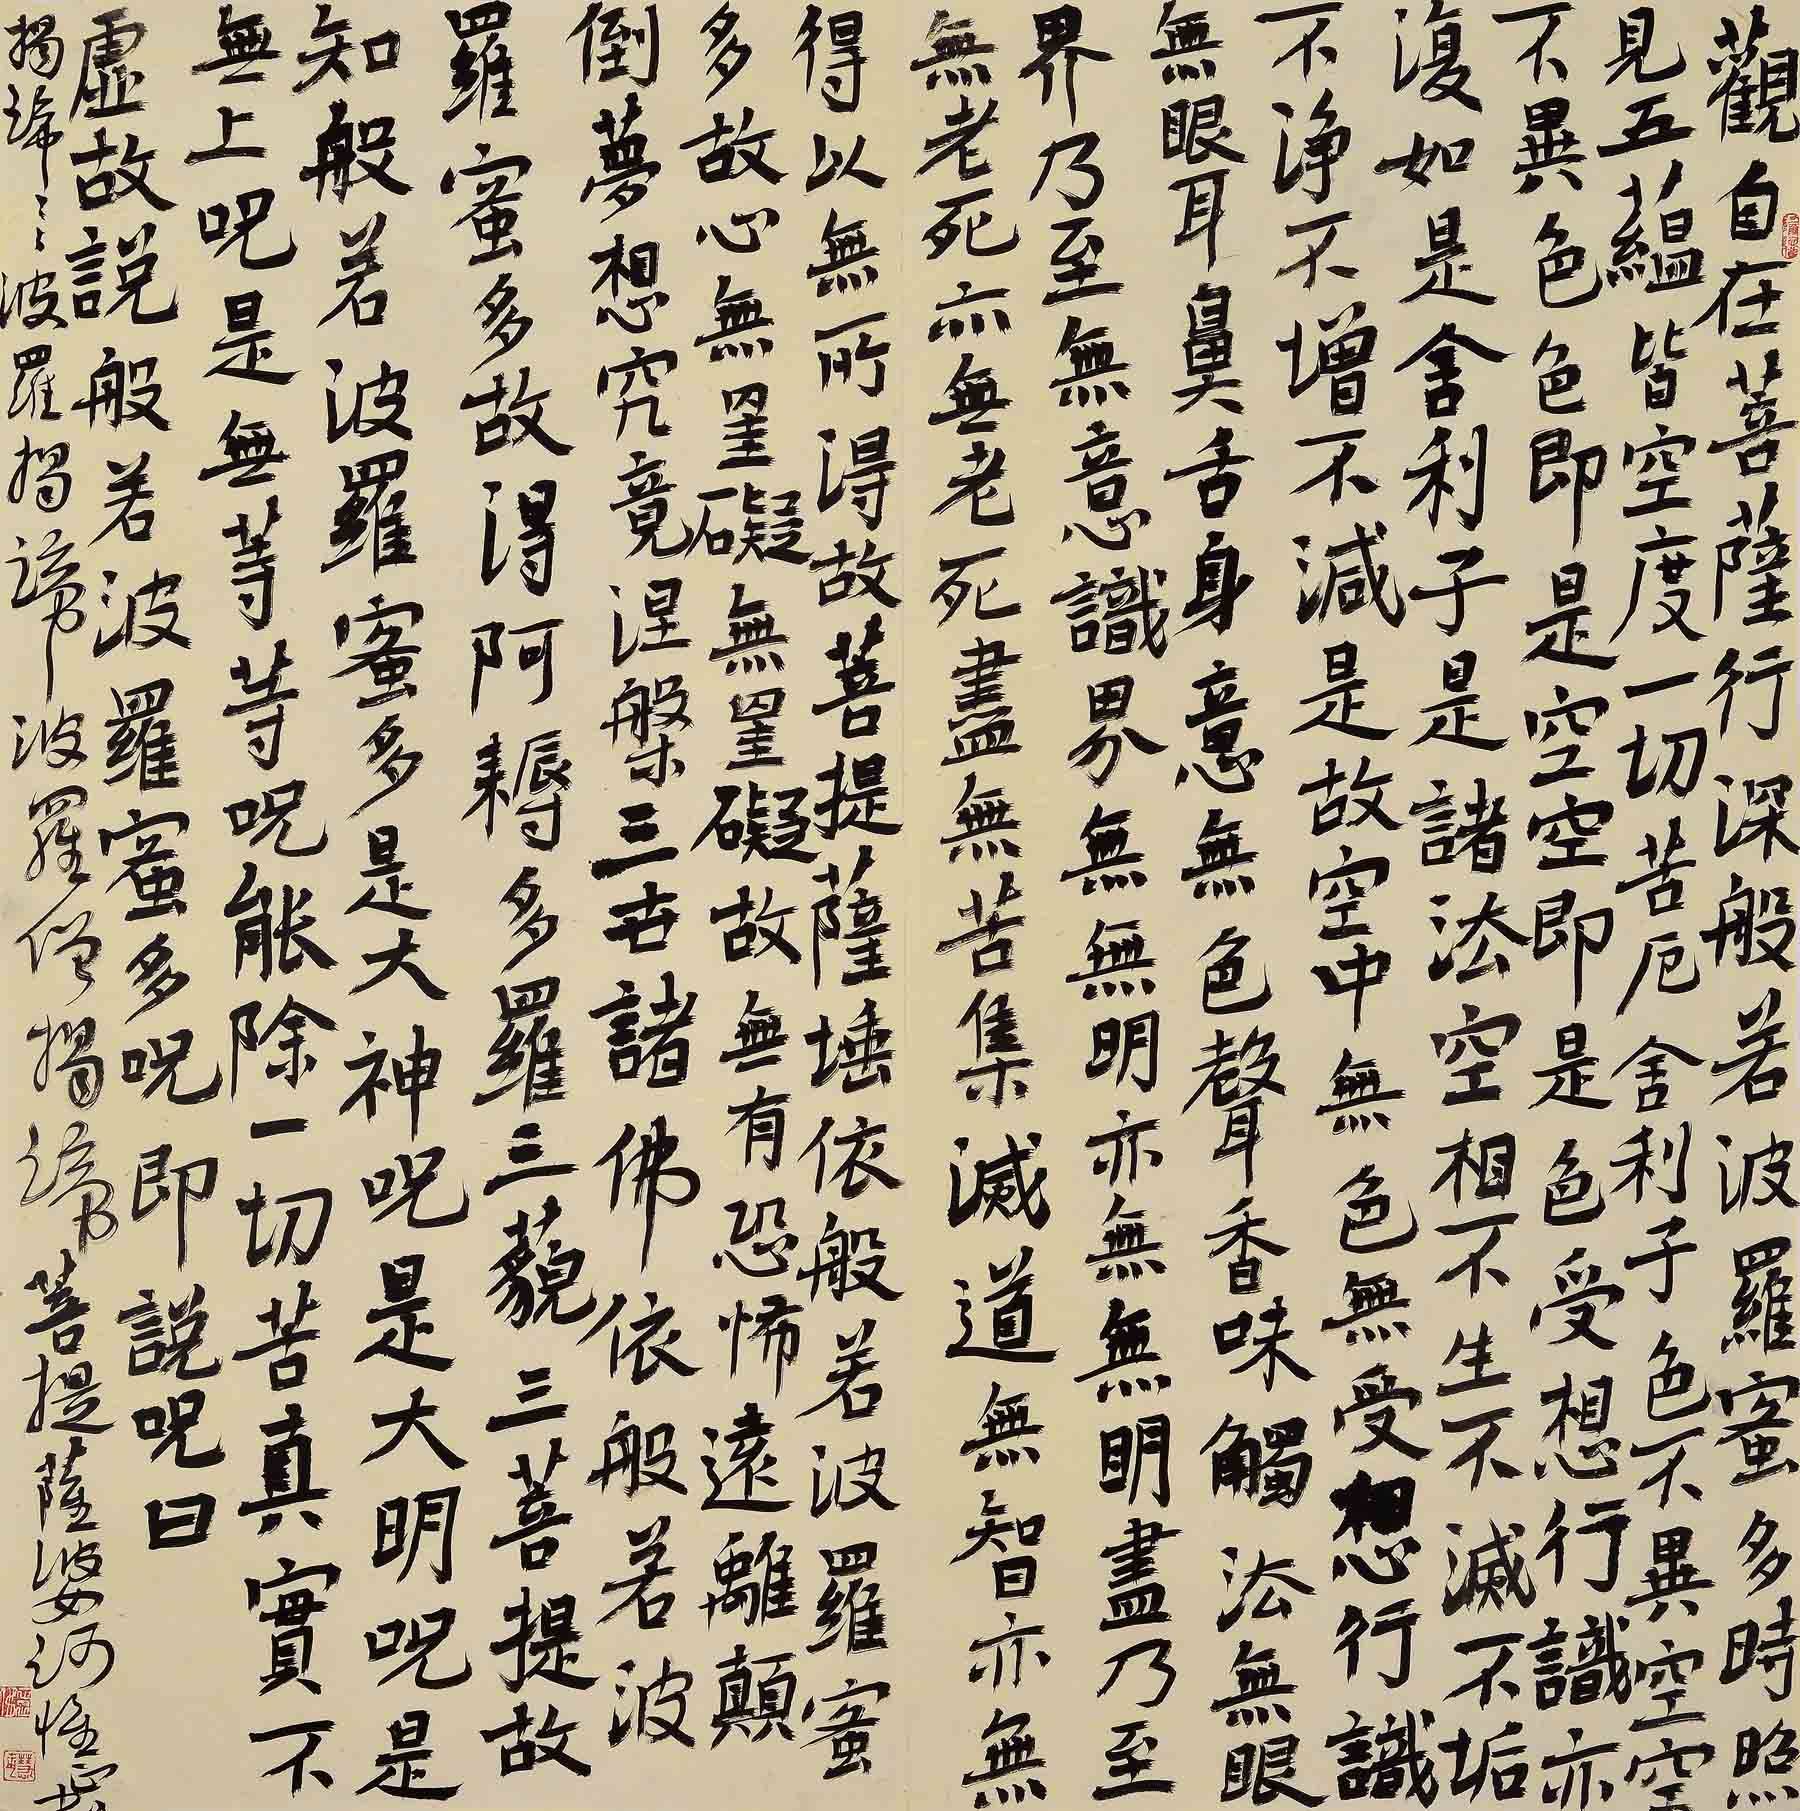 觀自在菩薩行深般若波羅蜜多時照
見五蘊皆空度一切苦厄舍利子色不異空空
不異色色即是空空即是色受想行識亦
復如是舍利子是諸法空相不生不滅不垢
不淨不增不減是故空中無色無受想行識
無眼耳鼻舌身意無色聲香味觸法無眼
界乃至無意識界無無明亦無無明盡乃至
無老死亦無老死盡無苦集滅道無智亦無
得以無所得故菩提薩埵依般若波羅蜜
多故心無罣礙無罣礙故無有恐怖遠離顛
倒夢想究竟涅槃三世諸佛依般若波
羅蜜多故得阿耨多羅三藐三菩提故
知般若波羅蜜多是大神呪是大明呪是
無上呪是無等等呪能除一切苦真實不
虛故說般若波羅蜜多呪即說呪曰
揭諦〻〻波羅揭諦波羅僧揭諦菩提薩婆訶